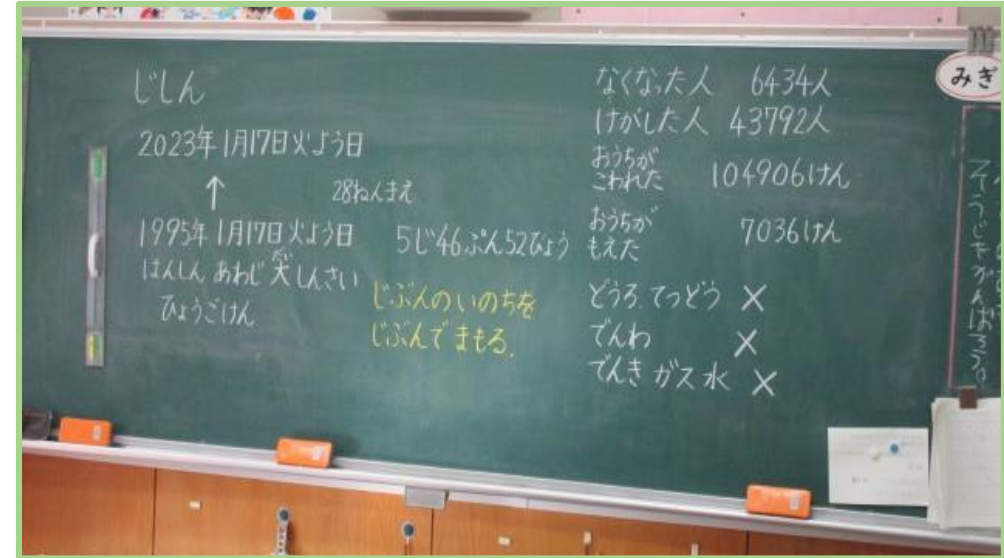 じしん
2023年1月17日火よう日
↑
28ねんまえ
1995年1月17日火よう日
5じ46ぷん52びょう
はんしんあわじ大しんさい
だい
ひょうごけん
じぶんのいのちを
じぶんでまもる.
なくなった人 6434人
けがした人 43792人
おうちが
こわれた 104906けん
おうちが
もえた 7036けん
どうろ.てつどう ×
でんわ ×
でんき ガス 水 ×
みぎ
そうじをがんばろう。